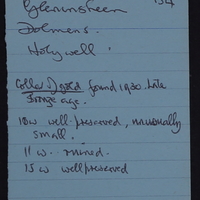 134
Gleninsheen
Dolmens.
Holy well
Collar D gold found 1930. Late
Bronze age.
10 w well-preserved, unusually
small.
11 w. ruined.
15 w well preserved